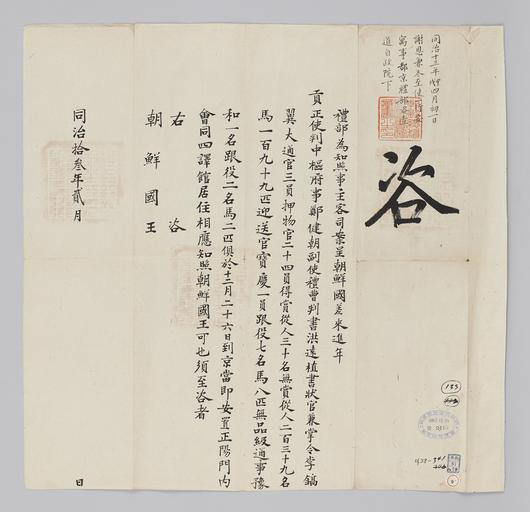 同治十三年甲戌四月初一日
謝恩兼冬至使
道自政院下
咨
禮部為知照事主客司案呈朝鮮國差來進年
貢正使判中樞府事鄭健朝副使禮曹判書洪遠植書狀官兼掌令李鎬
翼大通官三員押物官二十四員得賞從人三十名無賞從人二百三十九名
馬一百九十九匹迎送官寶慶一員跟役七名馬八匹無品級通事豫
和一名跟役二名馬二匹俱於十二月二十六日到京當即安置正陽門內
會同四譯館居住相應知照朝鮮國王可也須至咨者
右咨
朝鮮國王
同治拾叁年貳月
日
133